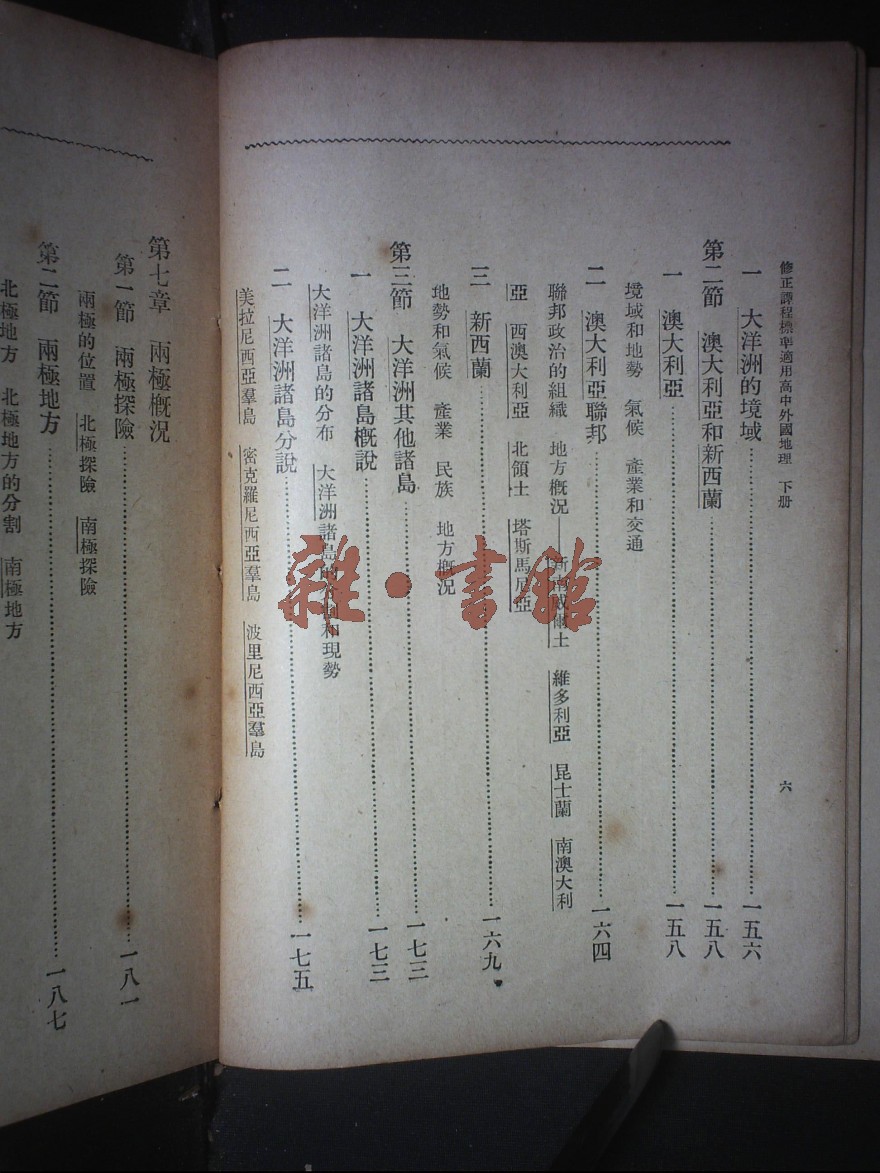 修正課程標準適用高中外國地理 下册 六
一 大洋洲的境域 一五六
第二節 澳大利亞和新西蘭 一五八
一 澳大利亞 一五八
境域和地勢 氣候 產業和交通
二 澳大利亞聯邦 一六四
聯邦政治的組織 地方概況——新南威爾士 維多利亞 昆士蘭 南澳大利
亞 西澳大利亞 北領土 塔斯馬尼亞
三 新西蘭 一六九
地勢和氣候 產業 民族 地方概況
第三節 大洋洲其他諸島 一七三
一 大洋洲諸島概說 一七三
大洋洲諸島的分布 大洋洲諸島的和現勢
二 大洋洲諸島分說 一七五
美拉尼西亞羣島 密克羅尼西亞羣島 波里尼西亞羣島
第七章 兩極概況
第一節 兩極探險 一八一
兩極的位置 北極探險 南極探險
第二節 兩極地方 一八七
北極地方 北極地方的分割 南極地方
雜·書館